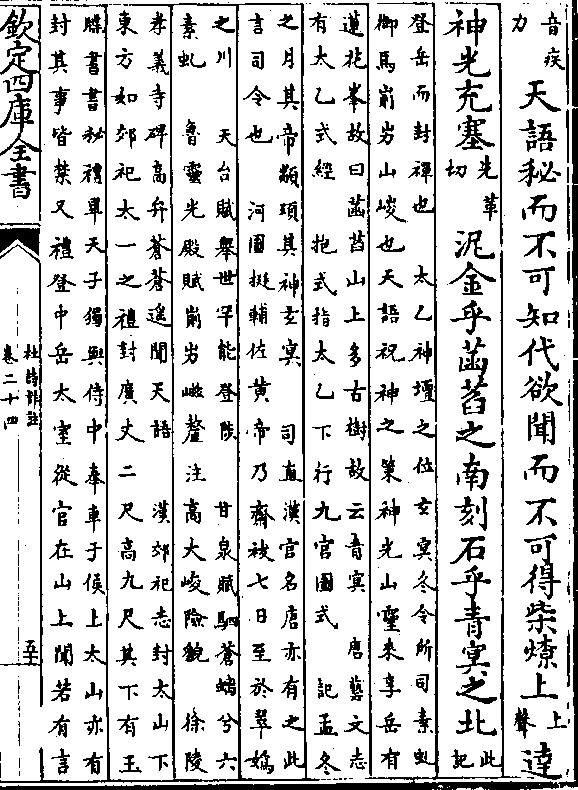 音疾
力
天語秘而不可知代欲聞而不可得柴燎上上聲達
神光充塞先革切泥金乎菡萏之南刻石乎青冥之北此記
登岳而封禪也　太乙神壇之位玄冥冬令所司素虬
御馬崱屴山峻也天語祝神之策神光山靈來享岳有
蓮花峯故曰菡萏山上多古樹故云青冥　唐藝文志
有太乙式經　抱式指太乙下行九宫圖式　記孟冬
之月其帝顓頊其神玄冥　司直漢官名唐亦有之此
言司令也　河圖挺輔佐黄帝乃齋祓七日至於翠媯
之川　天台賦舉世罕能登陟　甘泉賦駟蒼螭兮六
素虬　魯靈光殿賦崱屴嵫釐注高大峻險貌　徐陵
孝義寺碑高弁蒼蒼遥聞天語　漢郊祀志封太山下
東方如郊祀太一之禮封廣丈二尺高九尺其下有玉
牒書書秘禮畢天子獨與侍中奉車子侯上太山亦有
封其事皆禁又禮登中岳太室從官在山上聞若有言
欽定四庫全書
杜詩詳註
卷二十四